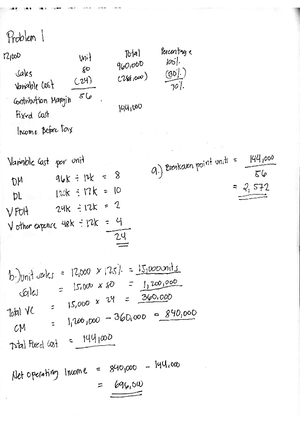 Problem 1
12,000 Unit Total Percentage
Sales 80 960,000 100%
Variable Cost (24) (288,000) (30%)
Contribution Margin 56 70%
Fixed Cost 144,000
Income Before Tax
Variable Cost per unit
DM 96k ÷ 12k = 8
DL 120k ÷ 12k = 10
V FOH 24k ÷ 12k = 2
V other expense 48k ÷ 12k = 4
24
a.) Breakeven point units = 144,000
56
= 2,572
b.) Unit sales = 12,000 x 125% = 15,000 units
Sales = 15,000 x 80 = 1,200,000
Total VC = 15,000 x 24 = 360,000
CM = 1,200,000 - 360,000 = 840,000
Total Fixed Cost = 144,000
Net Operating Income = 840,000 - 144,000
= 696,000